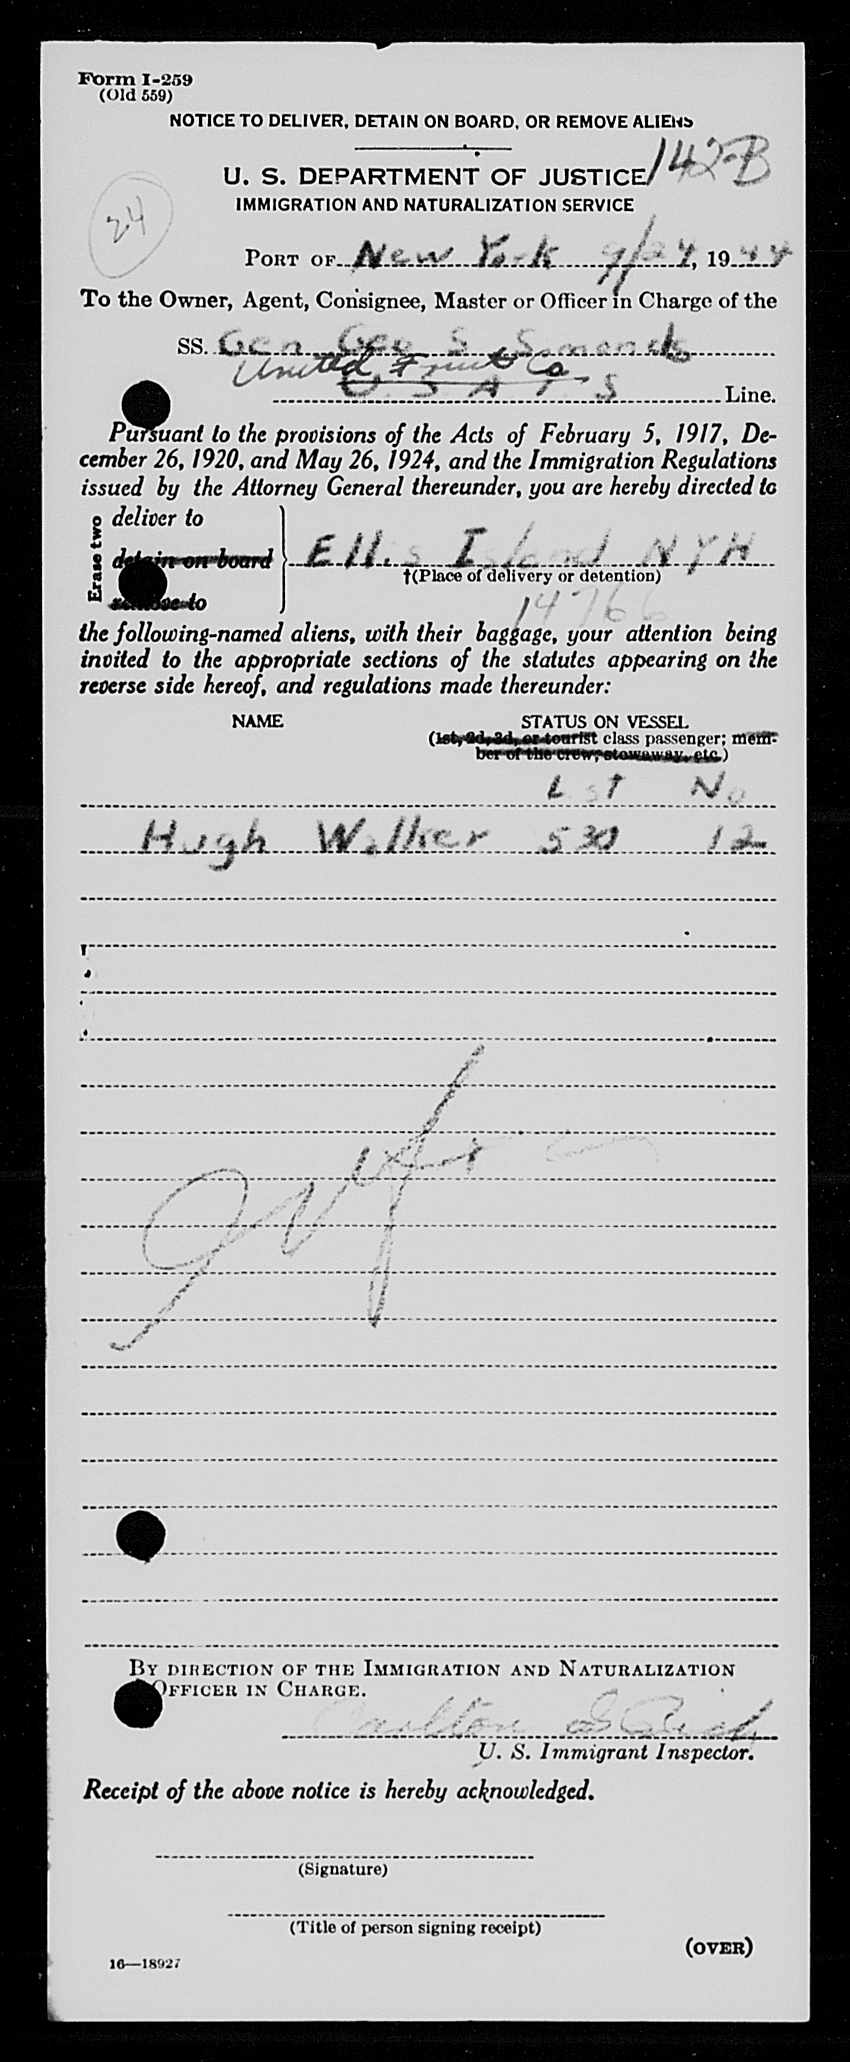 Form I-259
(Old 559)
NOTICE TO DELIVER, DETAIN ON BOARD, OR REMOVE ALIENS
142-B
U. S. DEPARTMENT OF JUSTICE
IMMIGRATION AND NATURALIZATION SERVICE
24
PORT OF New York 9/24, 1944
To the Owner, Agent, Consignee, Master or Officer in Charge of the
SS. Gen Geo S Simonds
United Fruit Co
U S A T S Line.
Pursuant to the provisions of the Acts of February 5, 1917, De-
cember 26, 1920, and May 26, 1924, and the Immigration Regulations
issued by the Attorney General thereunder, you are hereby directed to
Erase two
deliver to
detain on board
remove to
Ellis Island NYH
†(Place of delivery or detention)
14766
the following-named aliens, with their baggage, your attention being
invited to the appropriate sections of the statutes appearing on the
reverse side hereof, and regulations made thereunder:
NAME STATUS ON VESSEL
(1st, 2d, 3d, or tourist class passenger; mem-
ber of the crew, stowaway, etc.)
List No
Hugh Walker 530 12
BY DIRECTION OF THE IMMIGRATION AND NATURALIZATION
OFFICER IN CHARGE.
Carlton
U. S. Immigrant Inspector.
Receipt of the above notice is hereby acknowledged.
(Signature)
(Title of person signing receipt)
(OVER)
16—18927